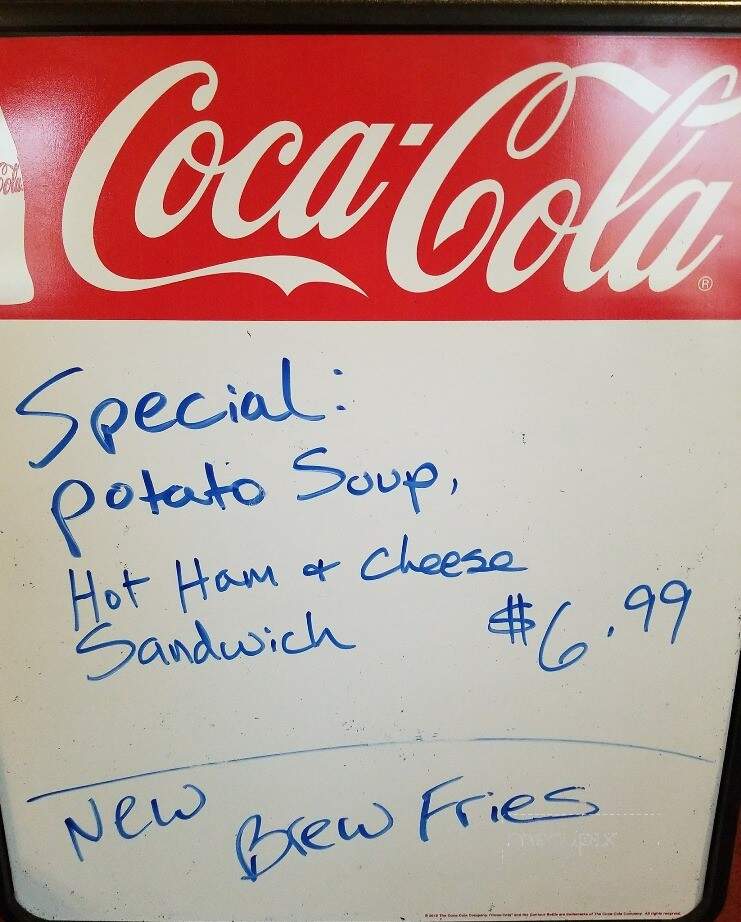 Coca-Cola
Special:
potato Soup,
Hot Ham & Cheese
Sandwich $6.99
New Brew Fries